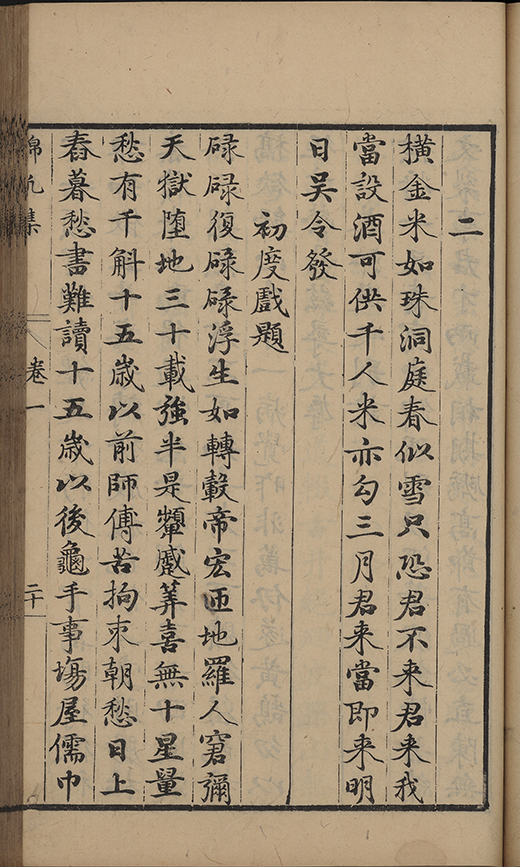 二
橫金米如珠洞庭春似雪只恐君不来君来我
當設酒可供千人米亦勾三月君来當即来明
日吴令發
初度戲題
碌碌復碌碌浮生如轉轂帝宏匝地羅人窘彌
天獄堕地三十載強半是顰蹙筭喜無十星量
愁有千斛十五歳以前師傅苦拘束朝愁日上
舂暮愁書難讀十五歳以後龜手事塲屋儒巾
錦帆集
卷一
二十